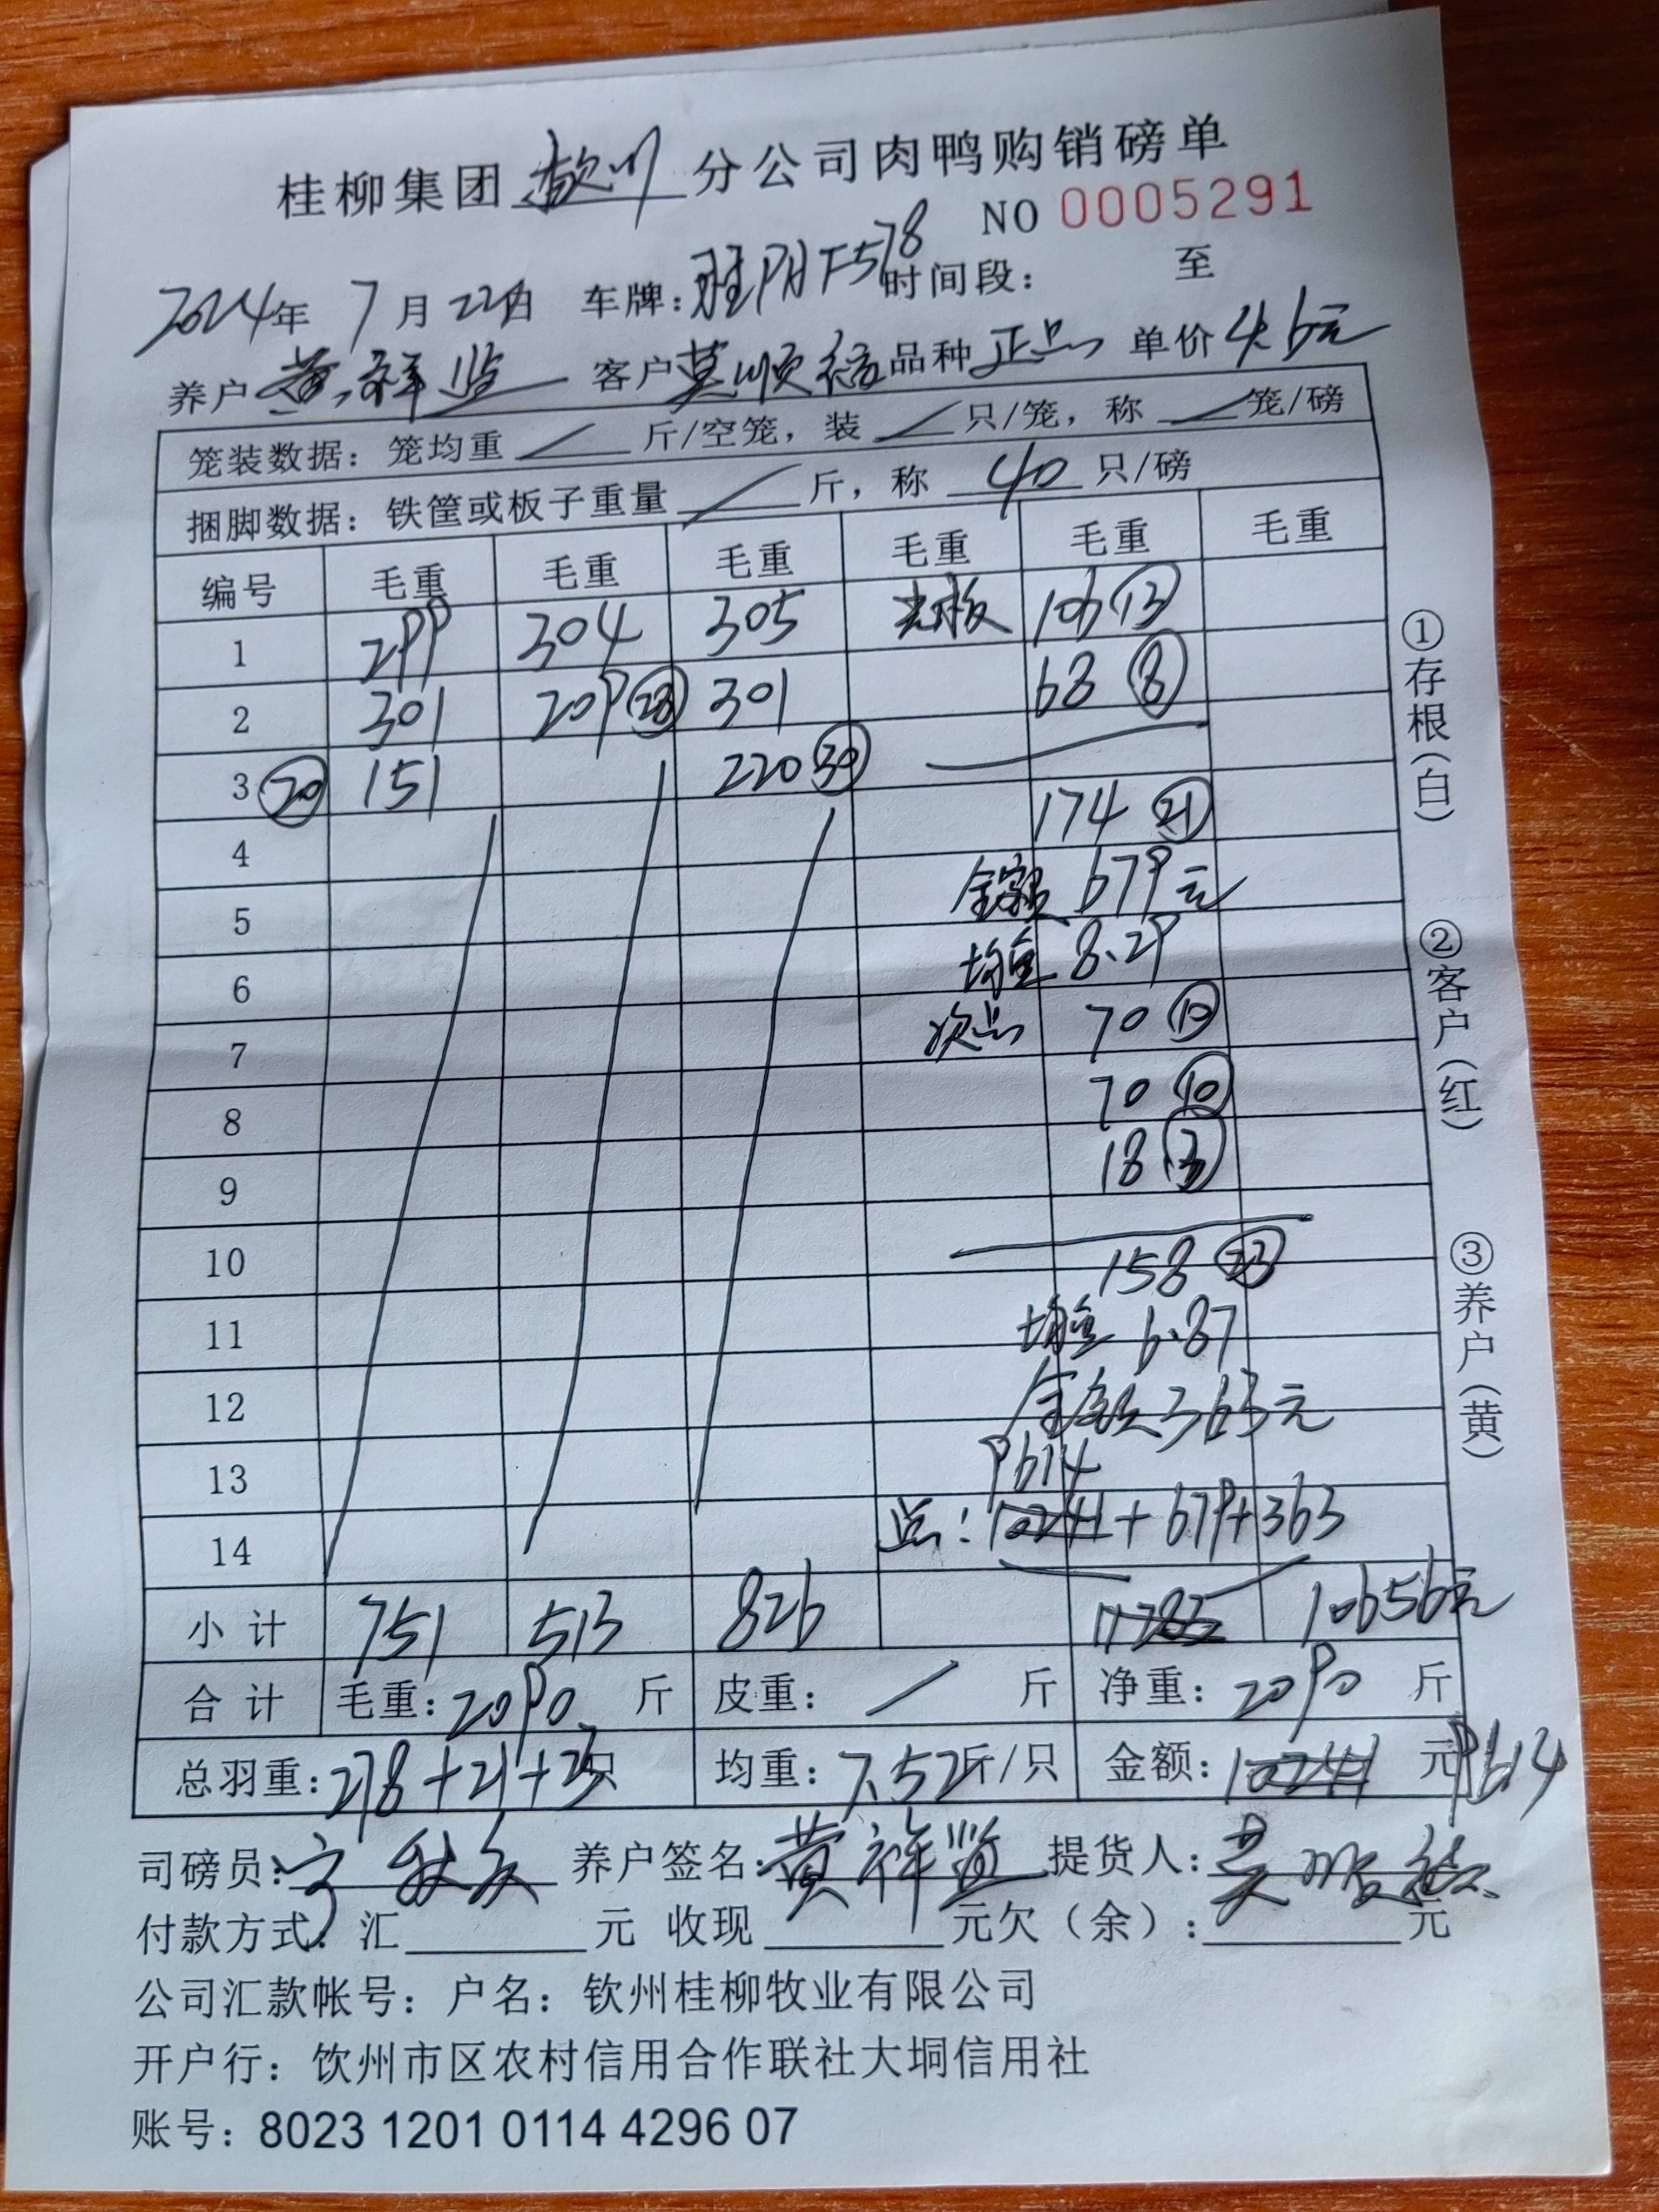 桂柳集团 钦州 分公司肉鸭购销磅单
NO 0005291
2024年 7月 22日 车牌: 578 时间段: 至
养户 黄祥监 客户 莫顺 品种 正品 单价 4.6元
笼装数据: 笼均重 / 斤/空笼, 装 / 只/笼, 称 / 笼/磅
捆脚数据: 铁筐或板子重量 / 斤, 称 40 只/磅
编号 毛重 毛重 毛重 毛重 毛重 毛重
1 299 304 305 光板 106 13
2 301 209 28 301 68 8
3 20 151 220 30
4 174 21
5 金额 679元
6 均重 8.29
7 次品 70 10
8 70 10
9 18 3
10 158 23
11 均重 6.87
12 金额 363元
13 9614
14 总: 10241 + 679 + 363
小计 751 513 826 11283 10656元
合计 毛重: 2090 斤 皮重: / 斤 净重: 2090 斤
总羽重: 278+21+23只 均重: 7.52斤/只 金额: 10241 元 9614
司磅员: 宁 养户签名: 黄祥监 提货人: 莫顺
付款方式: 汇 元 收现 元欠(余): 元
公司汇款帐号: 户名: 钦州桂柳牧业有限公司
开户行: 饮州市区农村信用合作联社大垌信用社
账号: 8023 1201 0114 4296 07
①存根(白)
②客户(红)
③养户(黄)